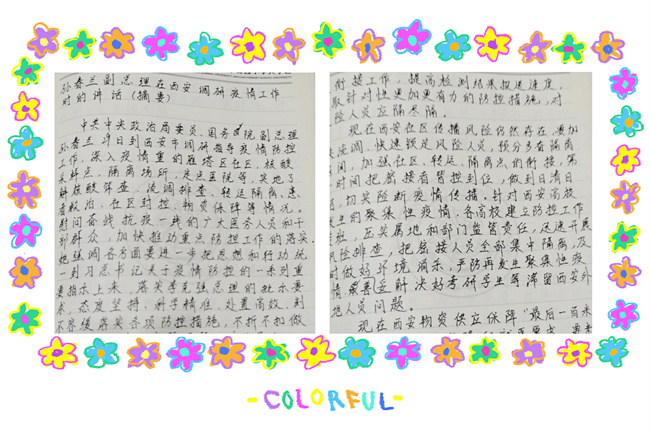 孙春兰副总理在西安调研疫情工作
时的讲话（摘要）
中共中央政治局委员、国务院副总理
孙春兰 日到西安市调研指导疫情防控
工作，深入疫情重的雁塔区社区、核酸
采样点、隔离场所、定点医院等，实地了
解核酸筛查、流调排查、转运隔离、患
者救治、社区封控、物资保障等情况。
慰问奋战抗疫一线的广大医务人员和干
部群众，加快推动重点防控工作的落实。
她强调各方面要进一步把思想和行动统
一到习总书记关于疫情防控的一系列重
要指示上来，落实李克强总理的批示要
求，态度坚持，科学精准，处置高效，刻
不容缓落实各项防控措施，不折不扣做
衔接工作，提高检测结果报送速度。
取针对性更加更有力的防控措施，对
险人员应隔尽隔。
现在西安社区传播风险仍然存在，要加
流调，快速锁定风险人员，预分多备隔离
间，加强社区、转运、隔离点的衔接，第
时间把密接者管控到位，做到日清日
，切实险断疫情传播。针对西安高校
生的聚集性疫情，各高校建立防控工作
班，压实属地和部门监管责任，迅速开展
风险排查，把密接人员全部集中隔离，及
时做好环境消杀，严防再发生聚集性疫
情 要妥解决好考研学生等滞留西安外
地人员问题。
现在西安物资供应保障“最后一百米
-COLORFUL-